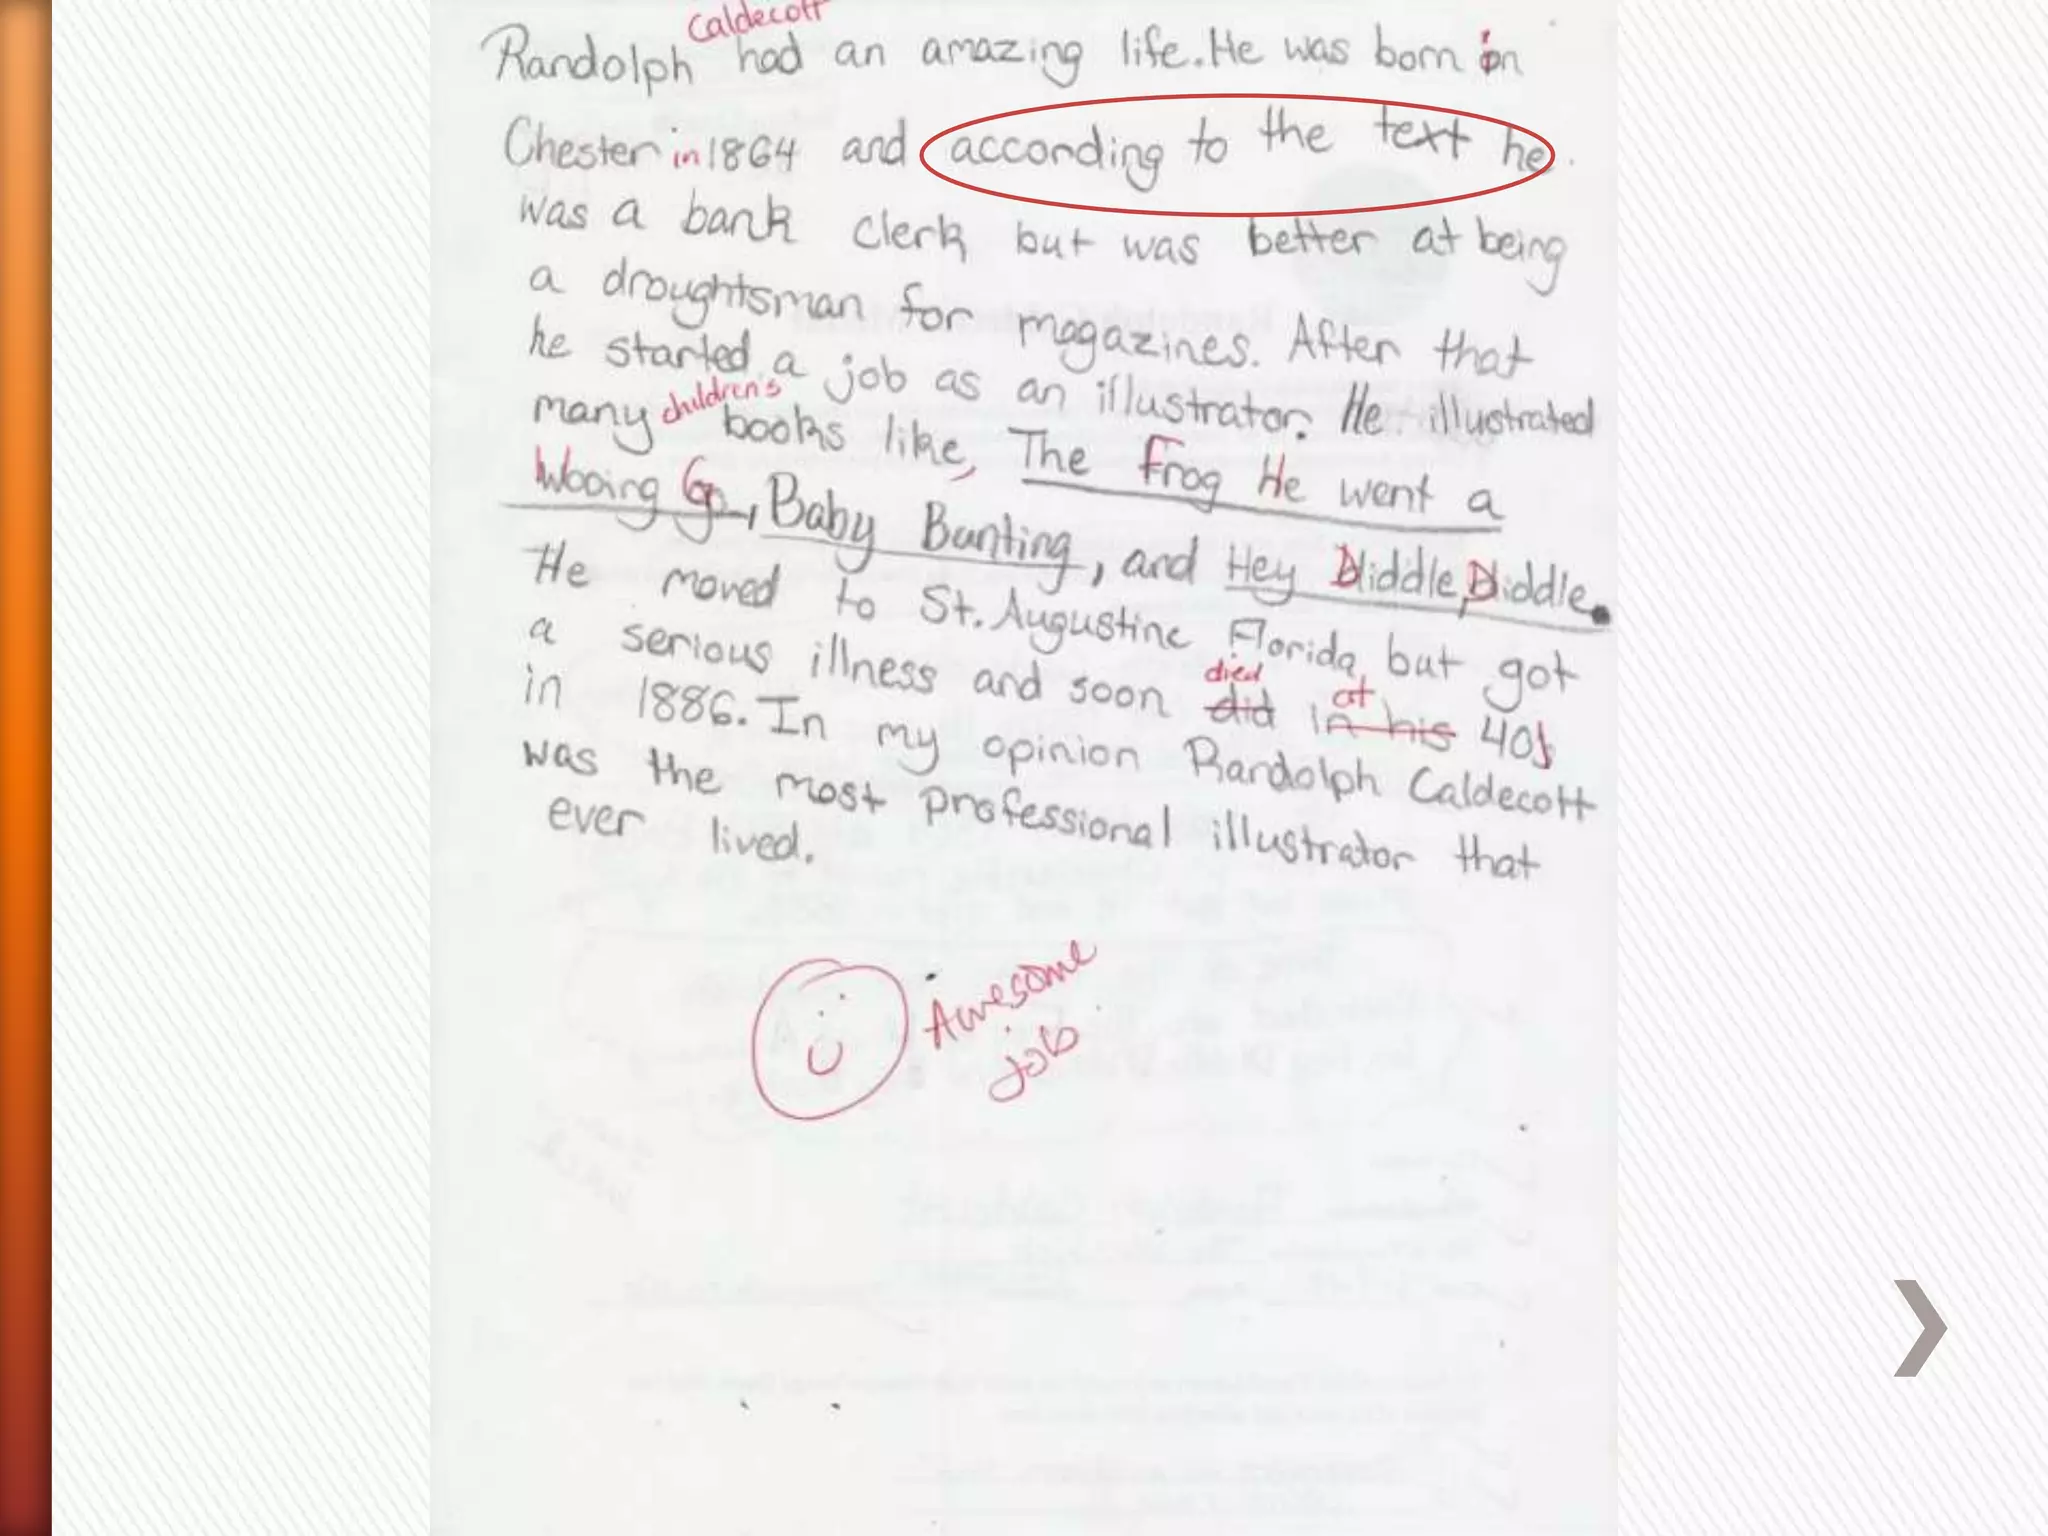 Caldecott
Randolph had an amazing life. He was born in
Chester in 1864 and according to the text he
was a bank clerk but was better at being
a droughtsman for magazines. After that
he started a job as an illustrator. He illustrated
many children's books like, The Frog He went a
Wooing Go, Baby Bunting, and Hey Diddle, Diddle.
He moved to St. Augustine Florida but got
a serious illness and soon did died in his at 40s
in 1886. In my opinion Randolph Caldecott
was the most professional illustrator that
ever lived.
Awesome
job